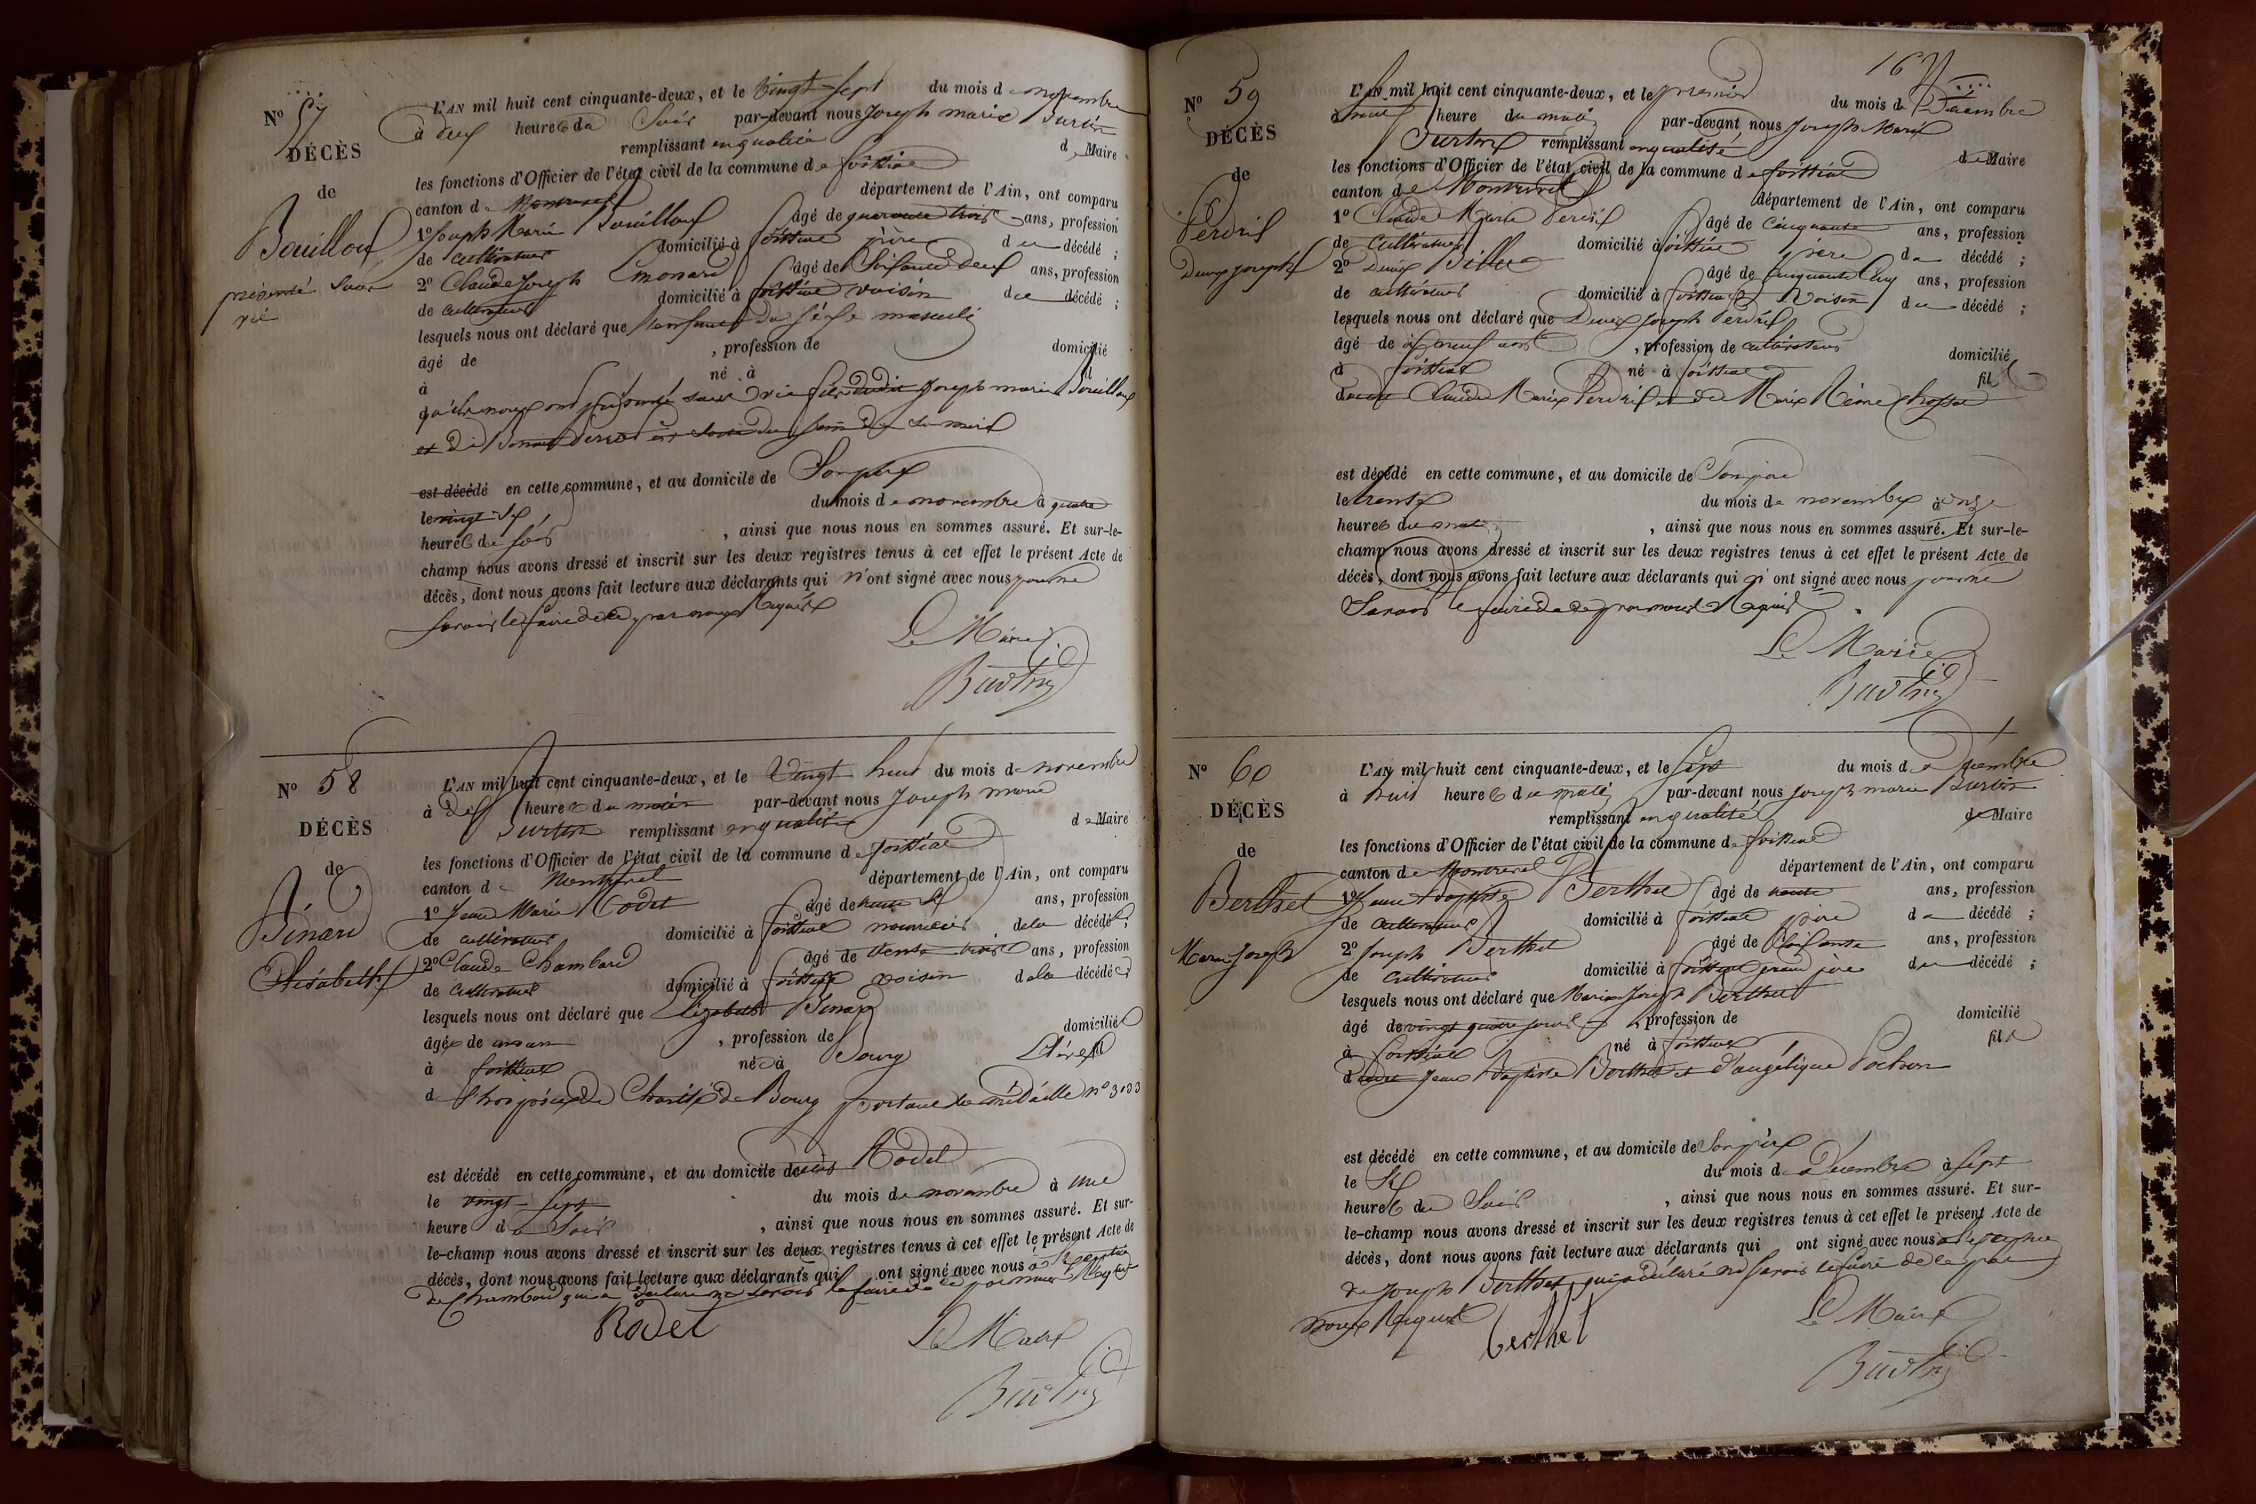 N° 57
DÉCÈS
de
Bouilloux
présenté sans
vie
L'AN mil huit cent cinquante-deux, et le vingt sept du mois de novembre
à deux heures du soir par-devant nous Joseph Marie Burtin
remplissant en qualité de Maire
les fonctions d'Officier de l'état civil de la commune de foissiat
canton de Montrevel département de l'Ain, ont comparu
1° Joseph Marie Bouilloux âgé de quarante trois ans, profession
de cultivateur domicilié à foissiat père du décédé ;
2° Claude Joseph Monard âgé de soixante deux ans, profession
de cultivateur domicilié à foissiat voisin du décédé ;
lesquels nous ont déclaré que l'enfant du sexe masculin
âgé de , profession de domicilié
à né à fil
qu'ils nous ont présenté sans vie fils dudit Joseph marie Bouilloux
et de est sorti du sein de sa mère
est décédé en cette commune, et au domicile de Son père
le vingt six du mois de novembre à quatre
heures du soir , ainsi que nous nous en sommes assuré. Et sur-le-
champ nous avons dressé et inscrit sur les deux registres tenus à cet effet le présent Acte de
décès, dont nous avons fait lecture aux déclarants qui n'ont signé avec nous pour ne
savoir le faire de ce par nous Requis
Le Maire
Burtin
N° 58
DÉCÈS
de
Bénard
Elisabeth
L'AN mil huit cent cinquante-deux, et le Vingt huit du mois de novembre
à dix heures du matin par-devant nous Joseph marie
Burtin remplissant en qualité de Maire
les fonctions d'Officier de l'état civil de la commune de foissiat
canton de Montrevel département de l'Ain, ont comparu
1° Jean Marie Rodet âgé de trente six ans, profession
de cultivateur domicilié à foissiat nourricier de la décédée ;
2° Claude Chambard âgé de trente trois ans, profession
de cultivateur domicilié à foissiat voisin de la décédée ;
lesquels nous ont déclaré que Elizabeth Bénard
âgée de un an , profession de domiciliée
à foissiat née à Bourg Elève fil
de l'hospice de Charité de Bourg portant la médaille n° 3133
est décédé en cette commune, et au domicile dudit Rodet
le vingt-sept du mois de novembre à une
heure du Soir , ainsi que nous nous en sommes assuré. Et sur-
le-champ nous avons dressé et inscrit sur les deux registres tenus à cet effet le présent Acte de
décès, dont nous avons fait lecture aux déclarants qui ont signé avec nous à l'exception
de Chambard qui a déclaré ne savoir le faire de ce par nous Requis
Rodet
Le Maire
Burtin
167
N° 59
DÉCÈS
de
Perdrix
Denis joseph
L'AN mil huit cent cinquante-deux, et le premier du mois de Décembre
à heure du matin par-devant nous Joseph Marie
Burtin remplissant en qualité de Maire
les fonctions d'Officier de l'état civil de la commune de foissiat
canton de Montrevel département de l'Ain, ont comparu
1° Claude Marie Perdrix âgé de cinquante ans, profession
de cultivateur domicilié à foissiat père du décédé ;
2° Denis âgé de cinquante cinq ans, profession
de cultivateur domicilié à foissiat Voisin du décédé ;
lesquels nous ont déclaré que Denis Joseph Perdrix
âgé de dix neuf ans , profession de cultivateur domicilié
à foissiat né à foissiat fils
dudit Claude Marie Perdrix et de Marie Reine
est décédé en cette commune, et au domicile de Son père
le trente du mois de novembre à onze
heures du matin , ainsi que nous nous en sommes assuré. Et sur-le-
champ nous avons dressé et inscrit sur les deux registres tenus à cet effet le présent Acte de
décès, dont nous avons fait lecture aux déclarants qui n'ont signé avec nous pour ne
Savoir le faire de ce par nous Requis
Le Maire
Burtin
N° 60
DÉCÈS
de
Berthet
Marie Joseph
L'AN mil huit cent cinquante-deux, et le sept du mois de Décembre
à huit heures du matin par-devant nous Joseph marie Burtin
remplissant en qualité de Maire
les fonctions d'Officier de l'état civil de la commune de foissiat
canton de Montrevel département de l'Ain, ont comparu
1° Jean Baptiste Berthet âgé de trente ans, profession
de cultivateur domicilié à foissiat père du décédé ;
2° Joseph Berthet âgé de Soixante ans, profession
de cultivateur domicilié à foissiat grand père du décédé ;
lesquels nous ont déclaré que Marie Joseph Berthet
âgé de vingt quatre jours , profession de domicilié
à foissiat né à foissiat fils
dudit Jean Baptiste Berthet et d'angélique Pochon
est décédé en cette commune, et au domicile de Son père
le Six du mois de Décembre à sept
heures du Soir , ainsi que nous nous en sommes assuré. Et sur-
le-champ nous avons dressé et inscrit sur les deux registres tenus à cet effet le présent Acte de
décès, dont nous avons fait lecture aux déclarants qui ont signé avec nous à l'exception
de Joseph Berthet qui a déclaré ne savoir le faire de ce par
nous Requis
berthet
Le Maire
Burtin